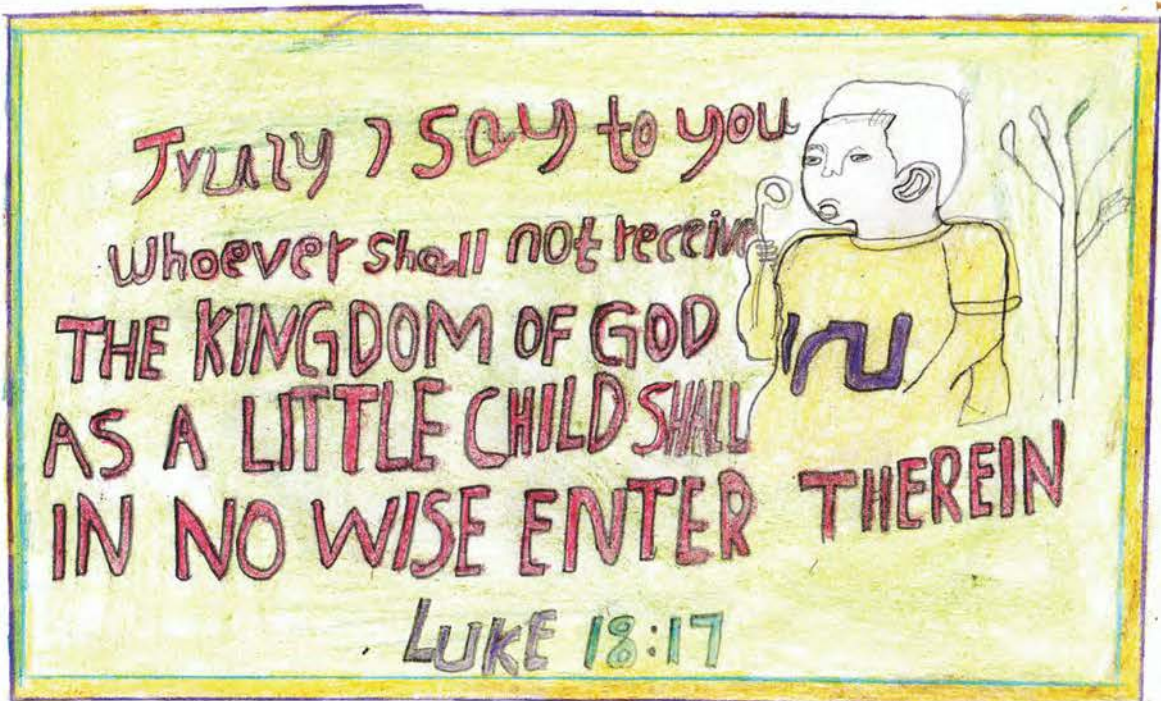 Truly I say to you
Whoever shall not receive
THE KINGDOM OF GOD
AS A LITTLE CHILD SHALL
IN NO WISE ENTER THEREIN
LUKE 18:17